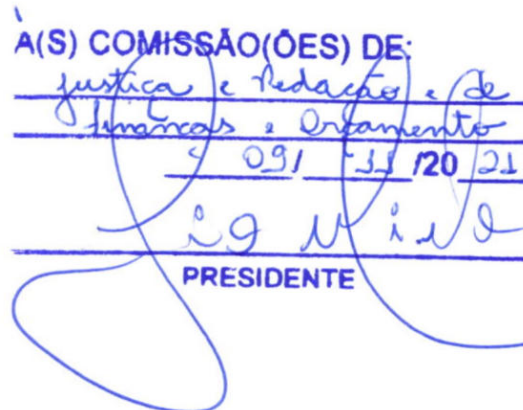 À(S) COMISSÃO(ÕES) DE:
Justiça e Redação e de
Finanças e Orçamento
09/ 11 /20 21
PRESIDENTE